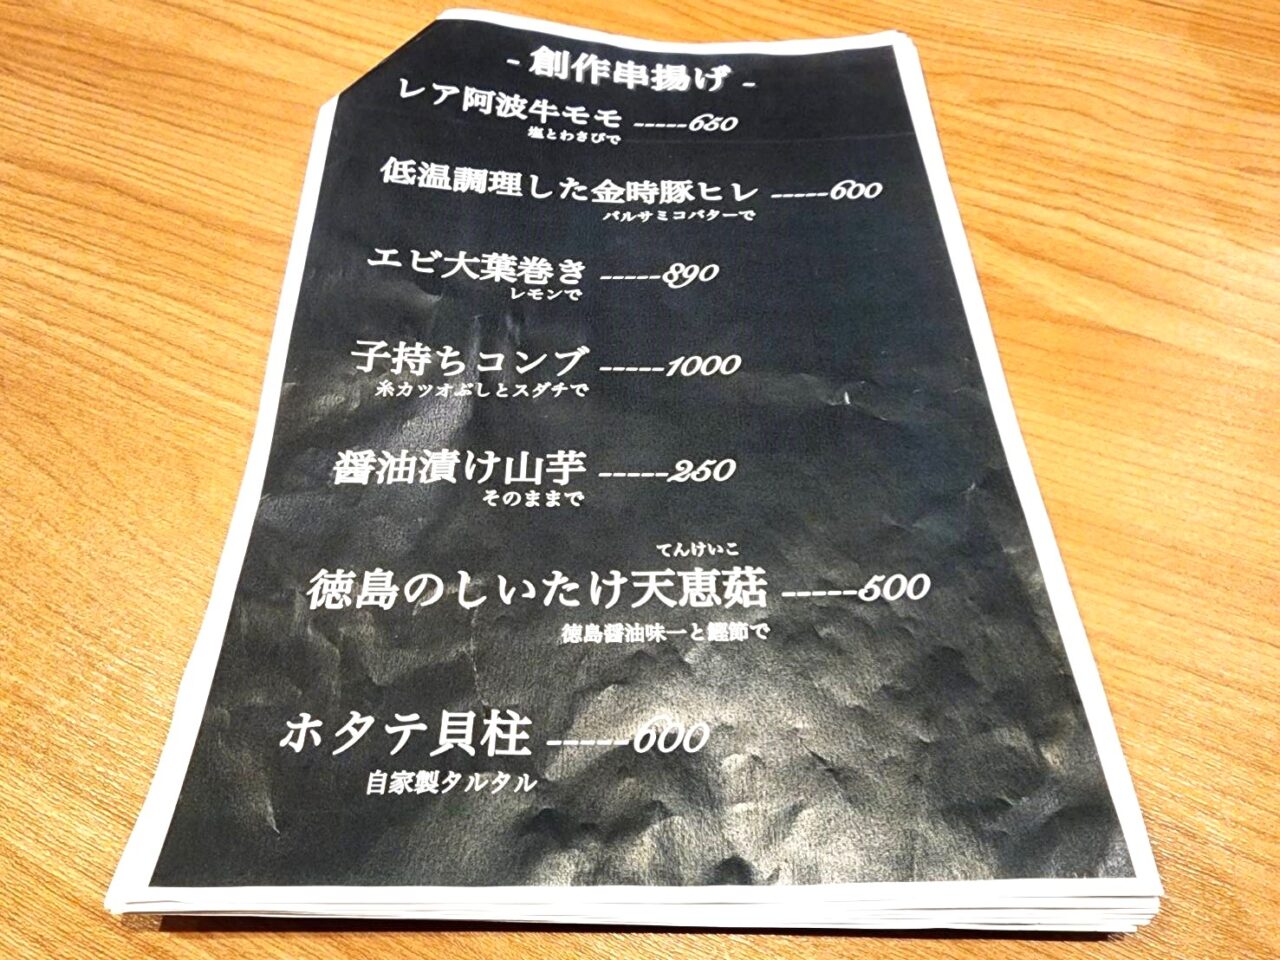 - 創作串揚げ -
レア阿波牛モモ -----650
塩とわさびで
低温調理した金時豚ヒレ -----600
バルサミコバターで
エビ大葉巻き -----890
レモンで
子持ちコンブ -----1000
糸カツオぶしとスダチで
醤油漬け山芋 -----250
そのままで
てんけいこ
徳島のしいたけ天恵菇 -----500
徳島醤油味一と鰹節で
ホタテ貝柱 -----600
自家製タルタル